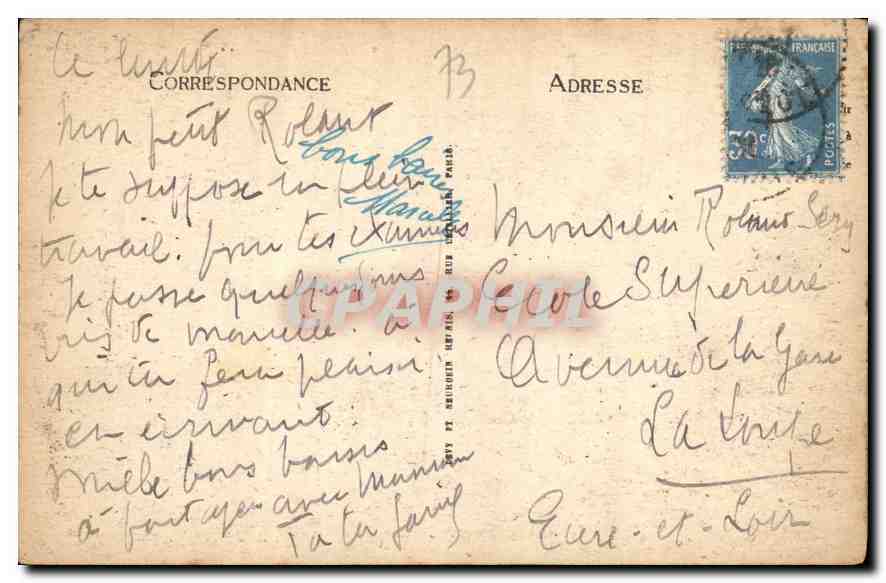 Ce lundi
CORRESPONDANCE
73
ADRESSE
REPUBLIQUE FRANÇAISE
30c
POSTES
Mon petit Roland
bons baisers
Je te suppose en plein
Marcelle
travail pour tes examens
Je passe quelques jours
de
qui tu feras plaisir
en écrivant.
Mille bons baisers
à partager avec Maman
Ta
LEVY ET NEURDEIN REUNIS, 44 RUE LETELLIER, PARIS.
CPAPHIL
Monsieur Roland
Ecole Supérieure
Avenue de la Gare
La Loupe
Eure-et-Loir